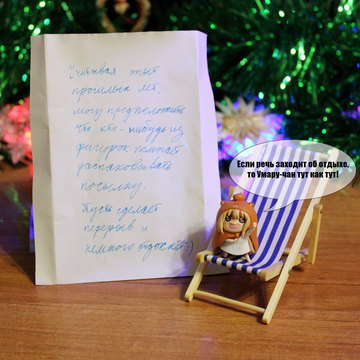 Учитывая опыт
прошлых лет,
могу предположить
что кто-нибудь из
фигурок помогает
распаковывать
посылку.
Пусть сделает
перерыв и
немного отдохнёт:)
Если речь заходит об отдыхе,
то Умару-чан тут как тут!